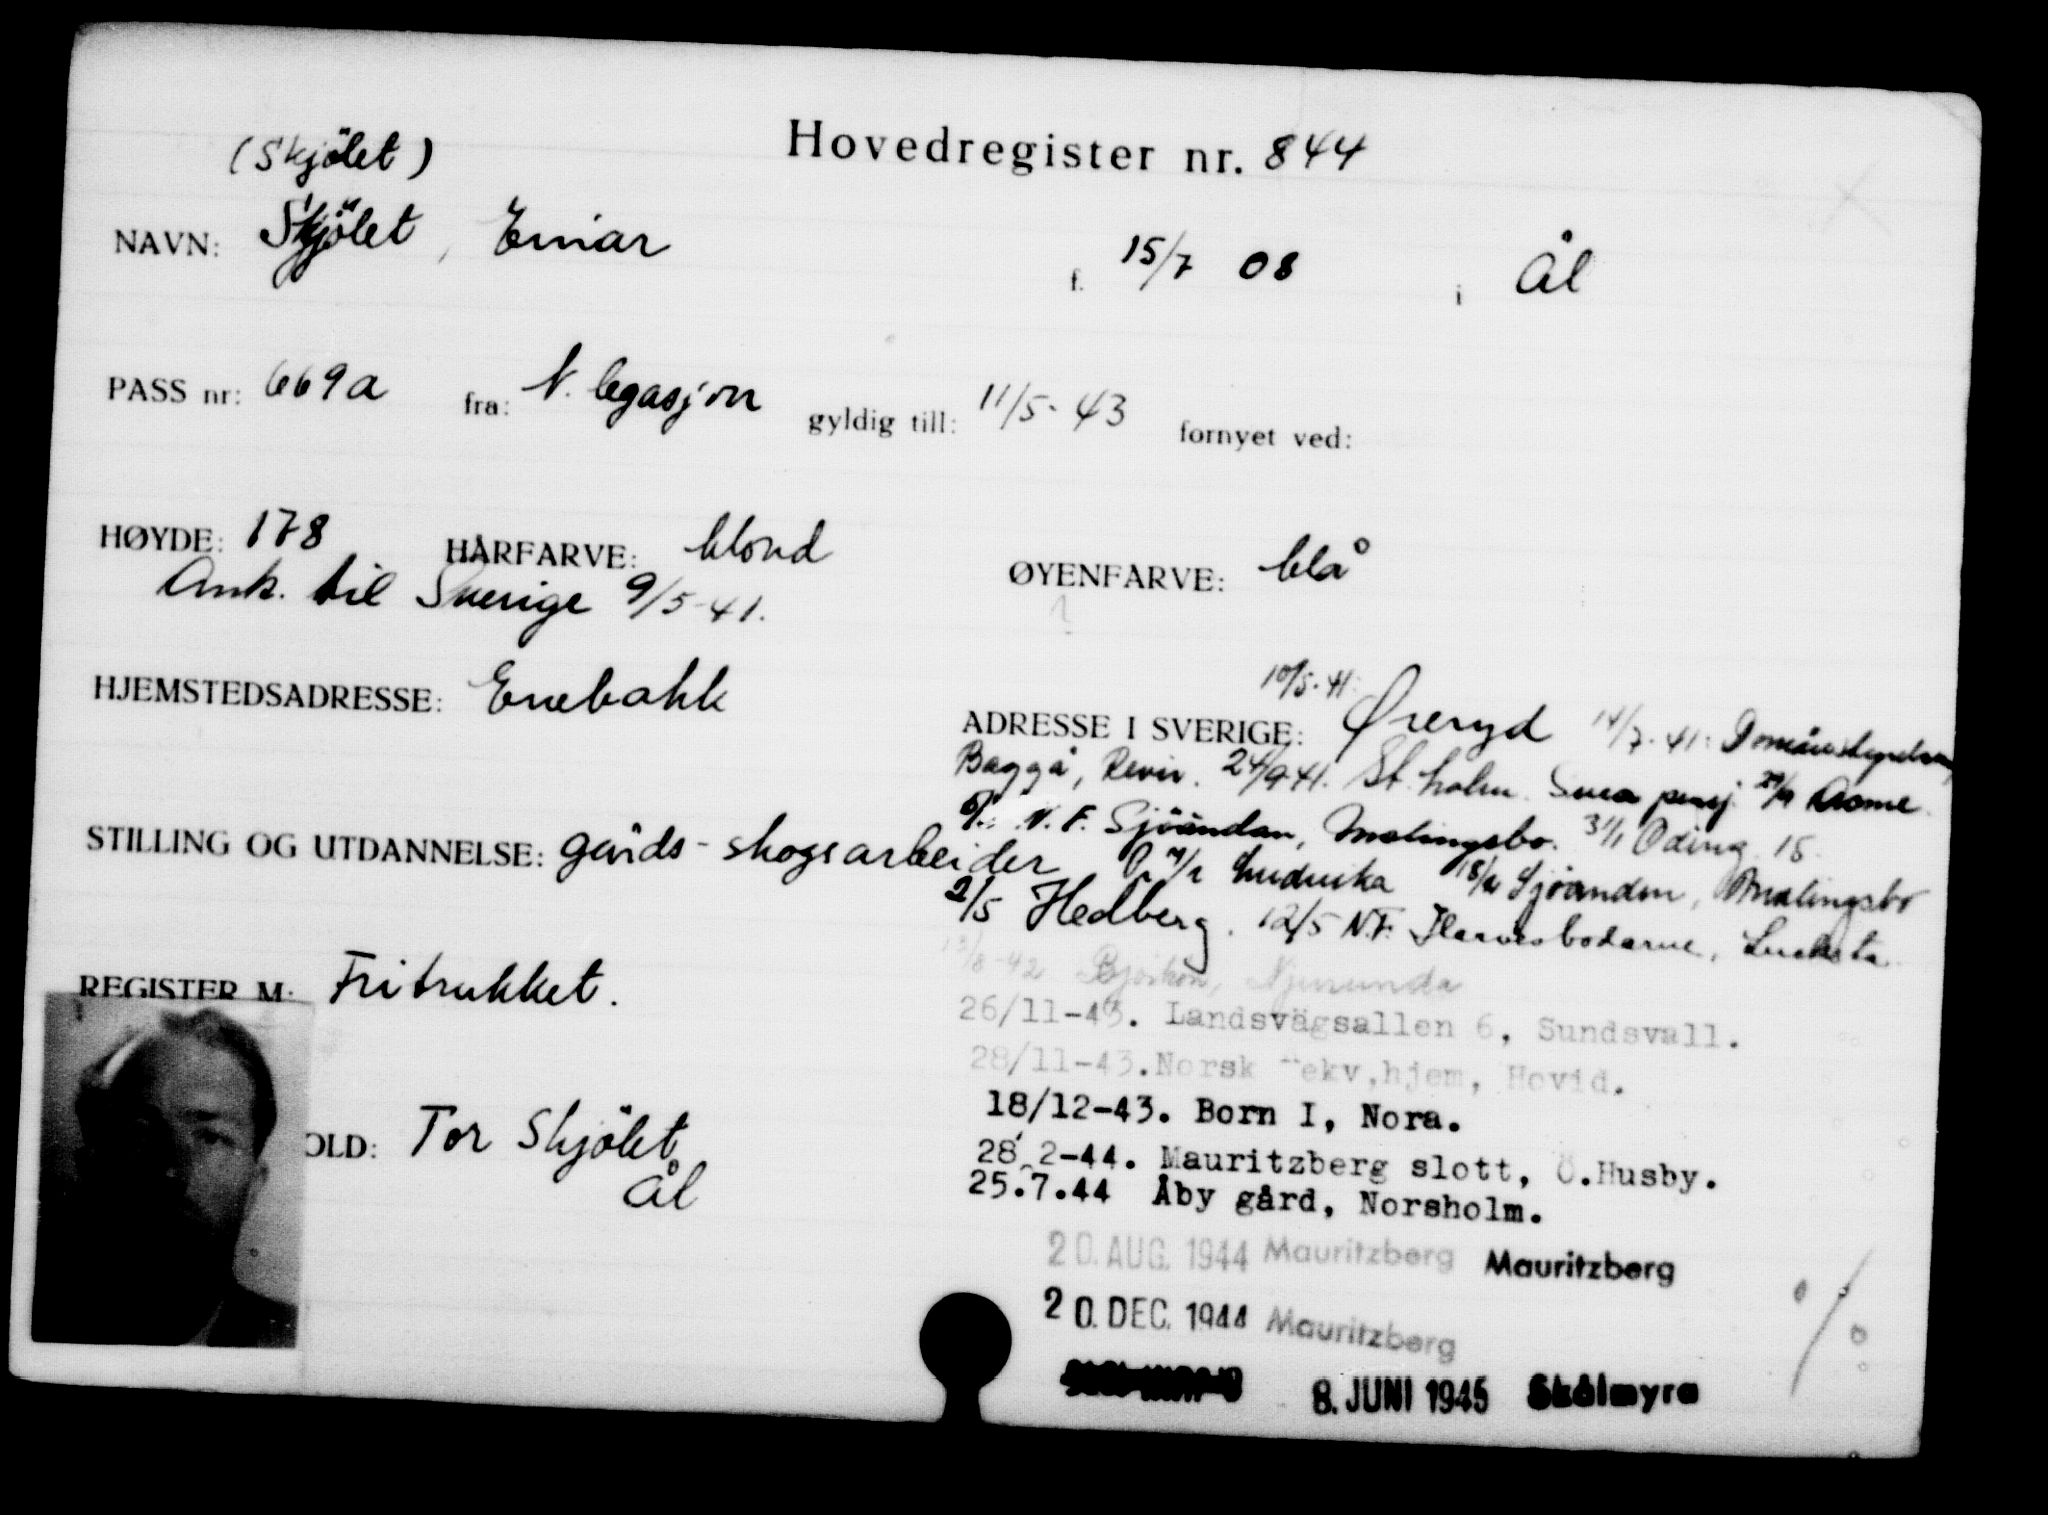 Hovedregister nr. 844
(Skjölet)
NAVN: Skjölet, Einar f. 15/7 08 i Ål
PASS nr: 669a fra: N. legasjon gyldig till: 11/5-43 fornyet ved:
HØYDE: 178 HÅRFARVE: blond ØYENFARVE: blå
Ank. til Sverige 9/5-41.
HJEMSTEDSADRESSE: Enebakk
STILLING OG UTDANNELSE: gårds-skogsarbeider
REGISTER M: Fritrukket.
OLD: Tor Skjölet
Ål
10/5-41:
ADRESSE I SVERIGE: Øreryd 14/7-41: Domänstyrelsen,
Baggå, Revir. 24/9-41. St.holm. Svea pensj. Acme.
N.F. Sjöändan, Malingsbo. 31/1 Oding. 15.
Ludvika 18/4 Sjöändan, Malingsbo
2/5 Hedberg. 12/5 N.F.
13/8-42 Björkön, Njurunda
26/11-43. Landsvägsallen 6, Sundsvall.
28/11-43. Norsk ekv,hjem, Hovid.
18/12-43. Born I, Nora.
28 2-44. Mauritzberg slott, Ö.Husby.
25.7.44 Åby gård, Norsholm.
20. AUG. 1944 Mauritzberg Mauritzberg
20. DEC. 1944 Mauritzberg
8. JUNI 1945 Skålmyra